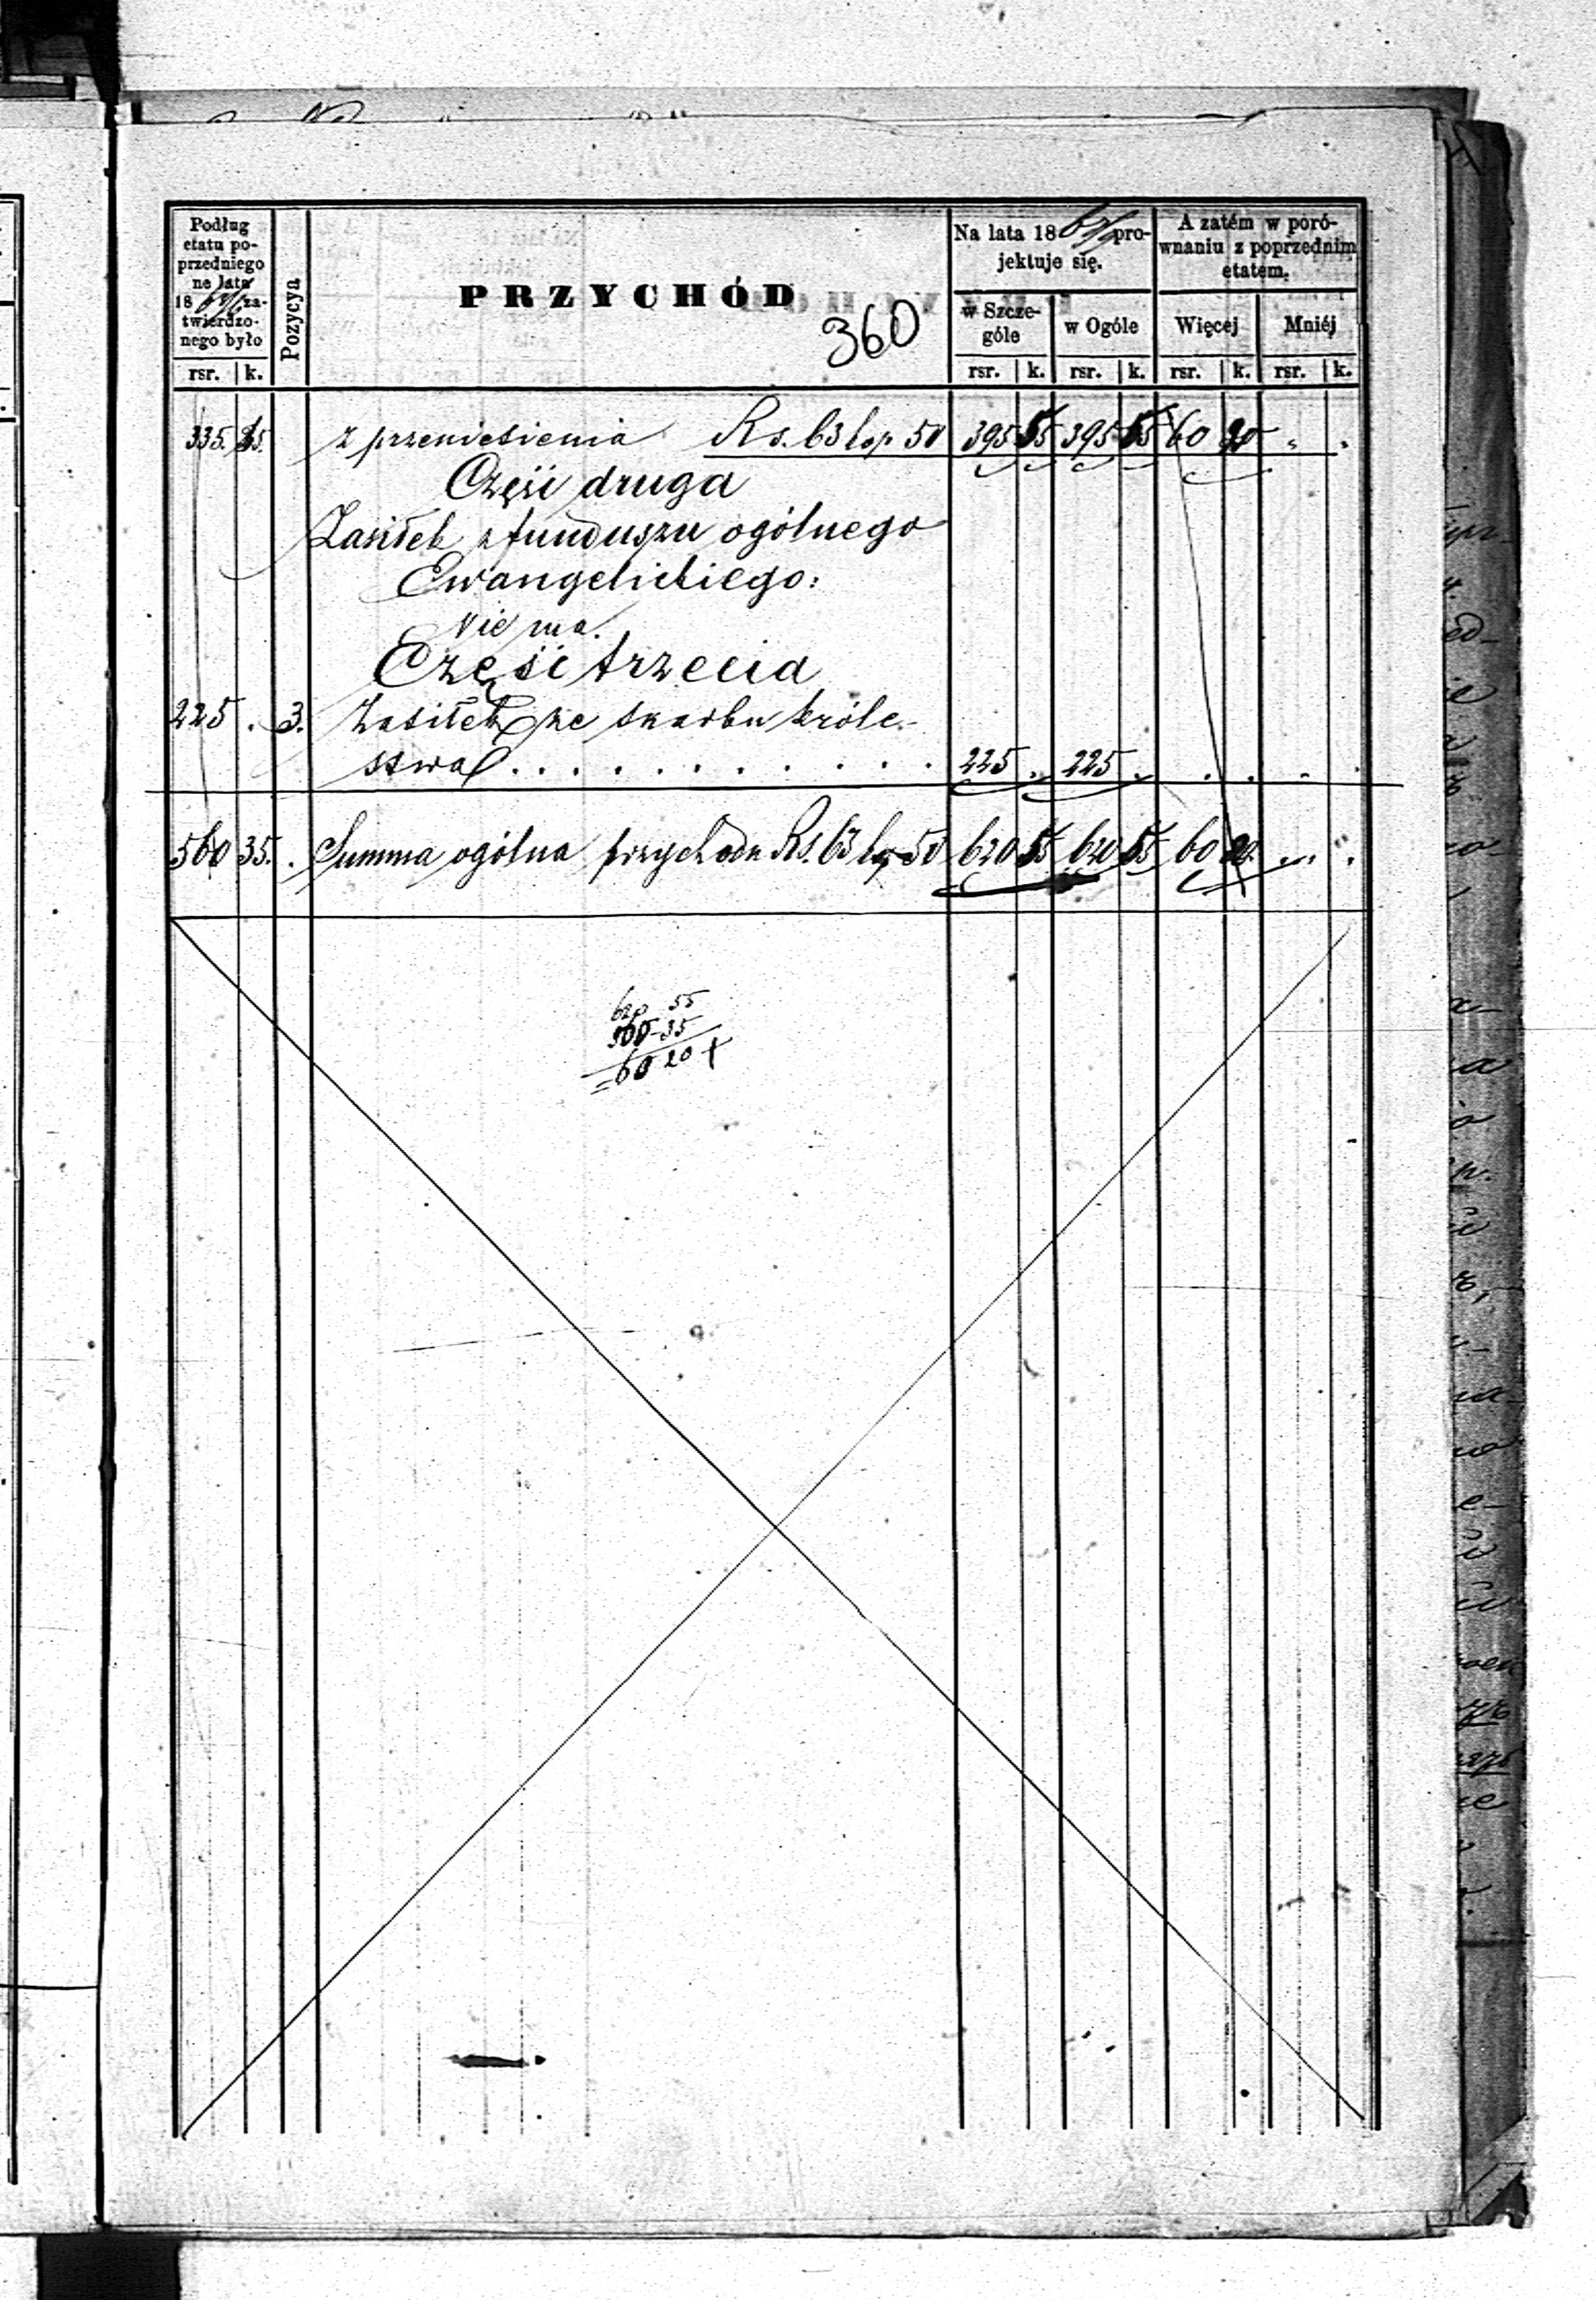 Podług
etatu po-
przedniego
na lata
18 za-
twierdzo-
nego było
rsr. k.
Pozycya
PRZYCHÓD
360
Na lata 18 pro-
jektuje się.
w Szcze-
góle
rsr. k.
w Ogóle
rsr. k.
A zatém w poró-
wnaniu z poprzednim
etatem.
Więcej
rsr. k.
Mniéj
rsr. k.
335. 35. z przeniesienia Rs. 63 kop 50 395 55 395 55 60 20
Część druga
Zasiłek z funduszu ogólnego
Ewangelickiego:
Nie ma.
Część trzecia
225 . 3. Zasiłek ze skarbu Króle-
stwa . . . . . . . . . . . . 225 . 225 . . . . .
560 35. . Summa ogólna przychodu Rs. 63 kop 50 620 55 620 55 60 20 . . .
620 55
560-35
=60 20 +